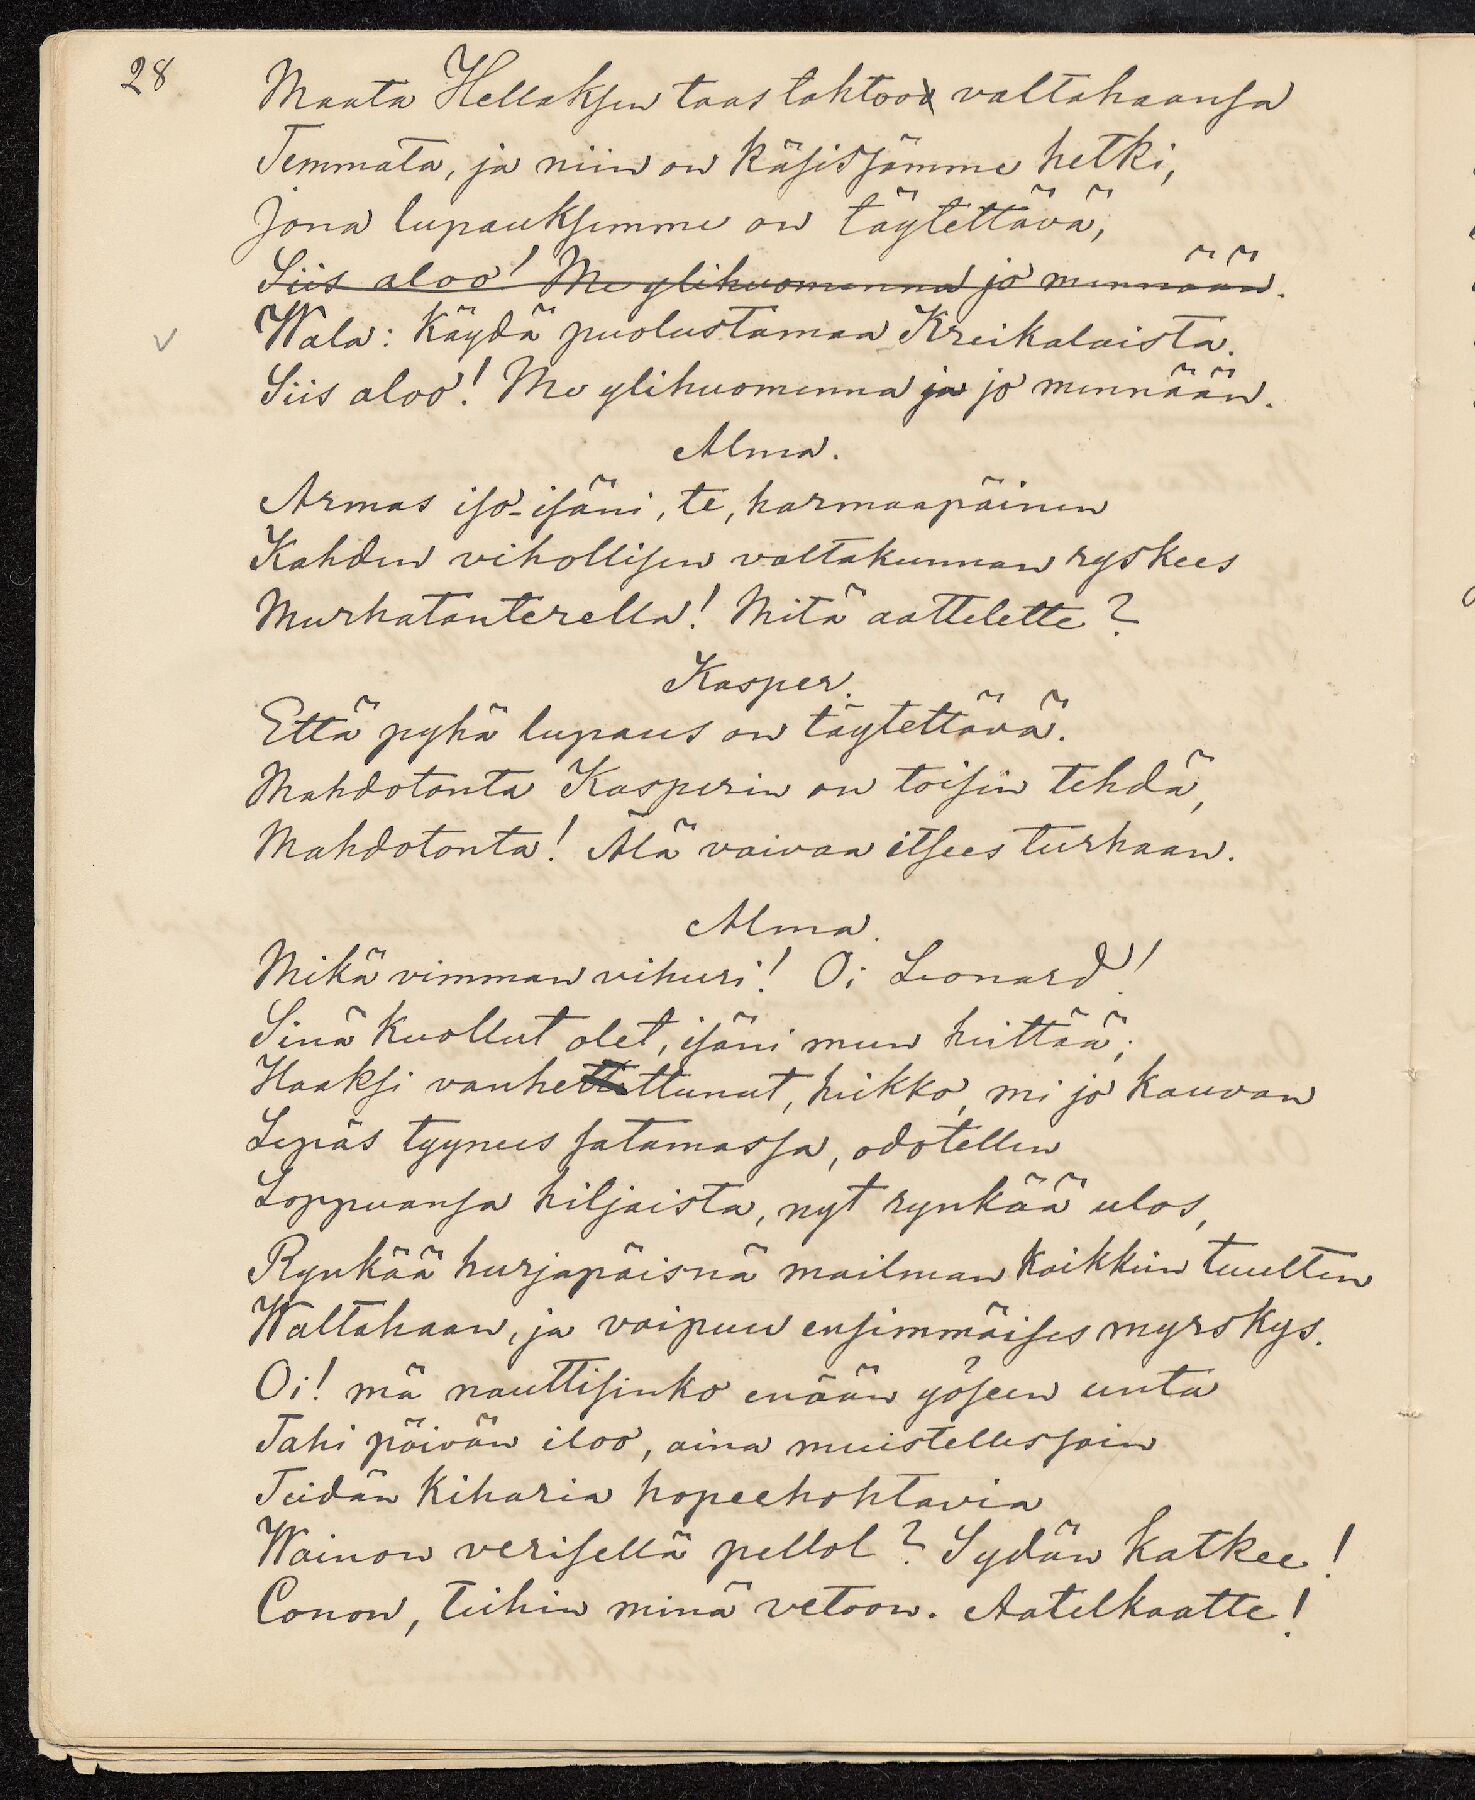 28
Maata Hellaksen taas tahtoo valtahaansa
Temmata, ja niin on käsissämme hetki,
Jona lupauksemme on täytettävä,
Siis aloo! Me ylihuomenna jo mennään.
Wala: Käydä puolustamaa Kreikalaista.
Siis aloo! Me ylihuomenna ja jo mennään.
Alma.
Armas iso-isäni, te, harmaapäinen
Kahden vihollisen valtakunnan ryskees
Murhatanterella! Mitä aattelette?
Kasper.
Että pyhä lupaus on täytettävä.
Mahdotonta Kasperin on toisin tehdä,
Mahdotonta! Älä vaivaa itsees turhaan.
Alma.
Mikä vimman vihuri! Oi Leonard!
Sinä kuollut olet, isäni mun heittää;
Haaksi vanhettunut, heikko, mi jo kauvan
Lepäs tyynees satamassa, odotellen
Loppuansa hiljaista, nyt rynkää ulos,
Rynkää hurjapäisnä mailman kaikkein tuulten
Waltahaan, ja vaipuu ensimmäises myrskys.
Oi! mä nauttisinko enään yöseen unta
Tahi päivän iloo, aina muistellessain
Teidän kiharia hopeehohtavia
Wainon verisellä pellol? Sydän katkee!
Conon, teihin minä vetoon. Aatelkaatte!